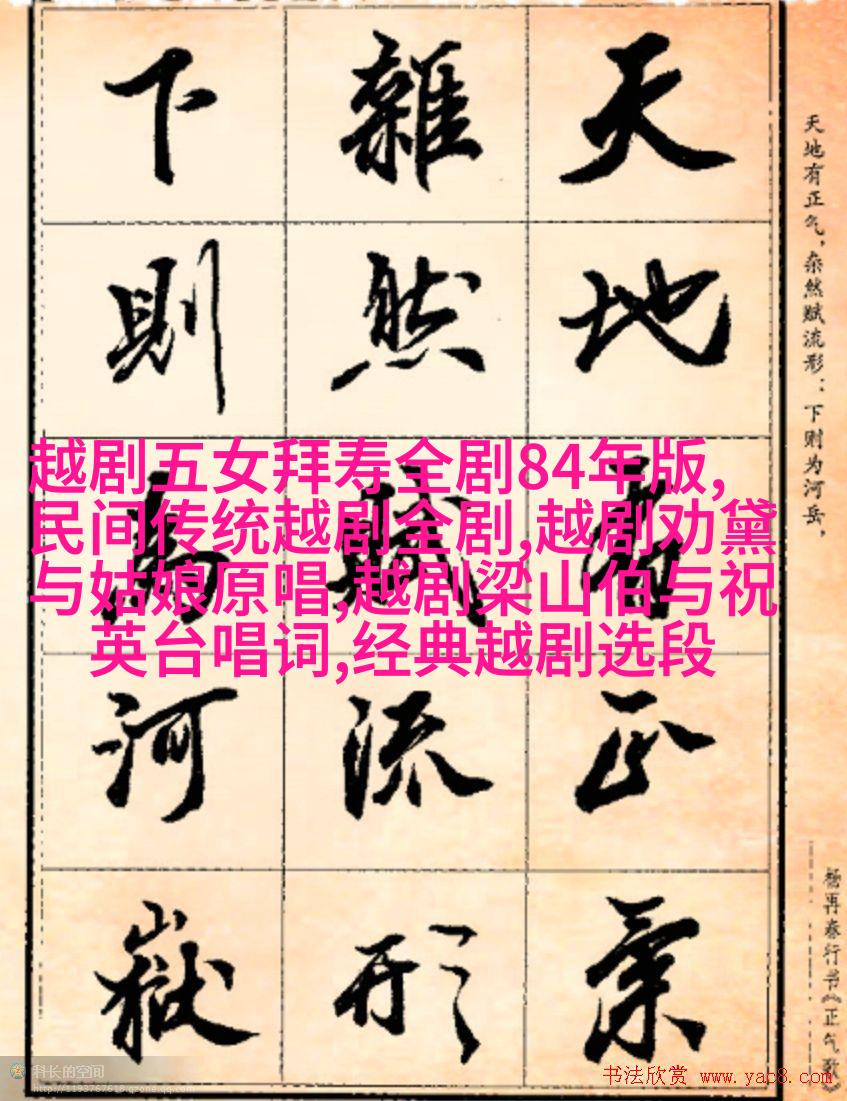 天地有正氣
雜然賦流形
下則為河嶽
天地有正气，杂然赋流形：下则为河岳，
杨再春行书《正气歌》
越剧五女拜寿全剧84年版,
民间传统越剧全剧,越剧劝黛
与姑娘原唱,越剧梁山伯与祝
英台唱词,经典越剧选段
科长的空间
http://1193767618.qzone.qq.com
书法欣赏 www.yac8.com